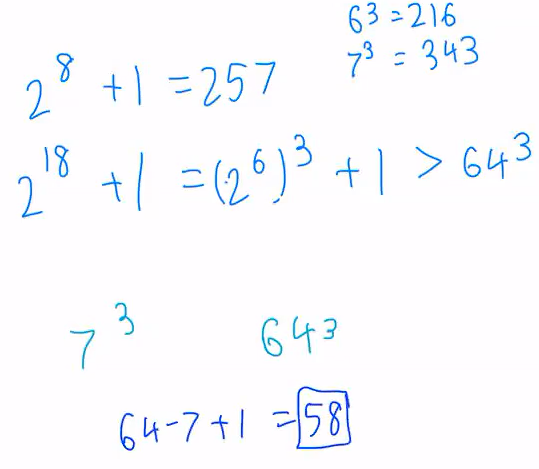 6³ = 216
7³ = 343
2⁸ + 1 = 257
2¹⁸ + 1 = (2⁶)³ + 1 > 64³
7³ 64³
64 - 7 + 1 = 58